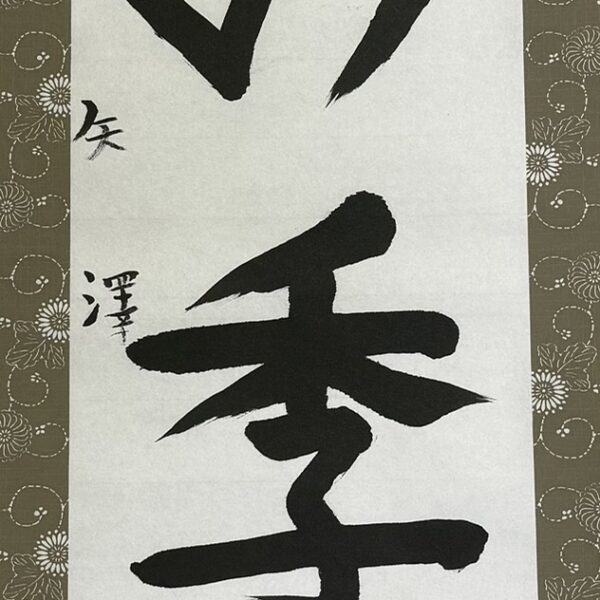 季
矢澤